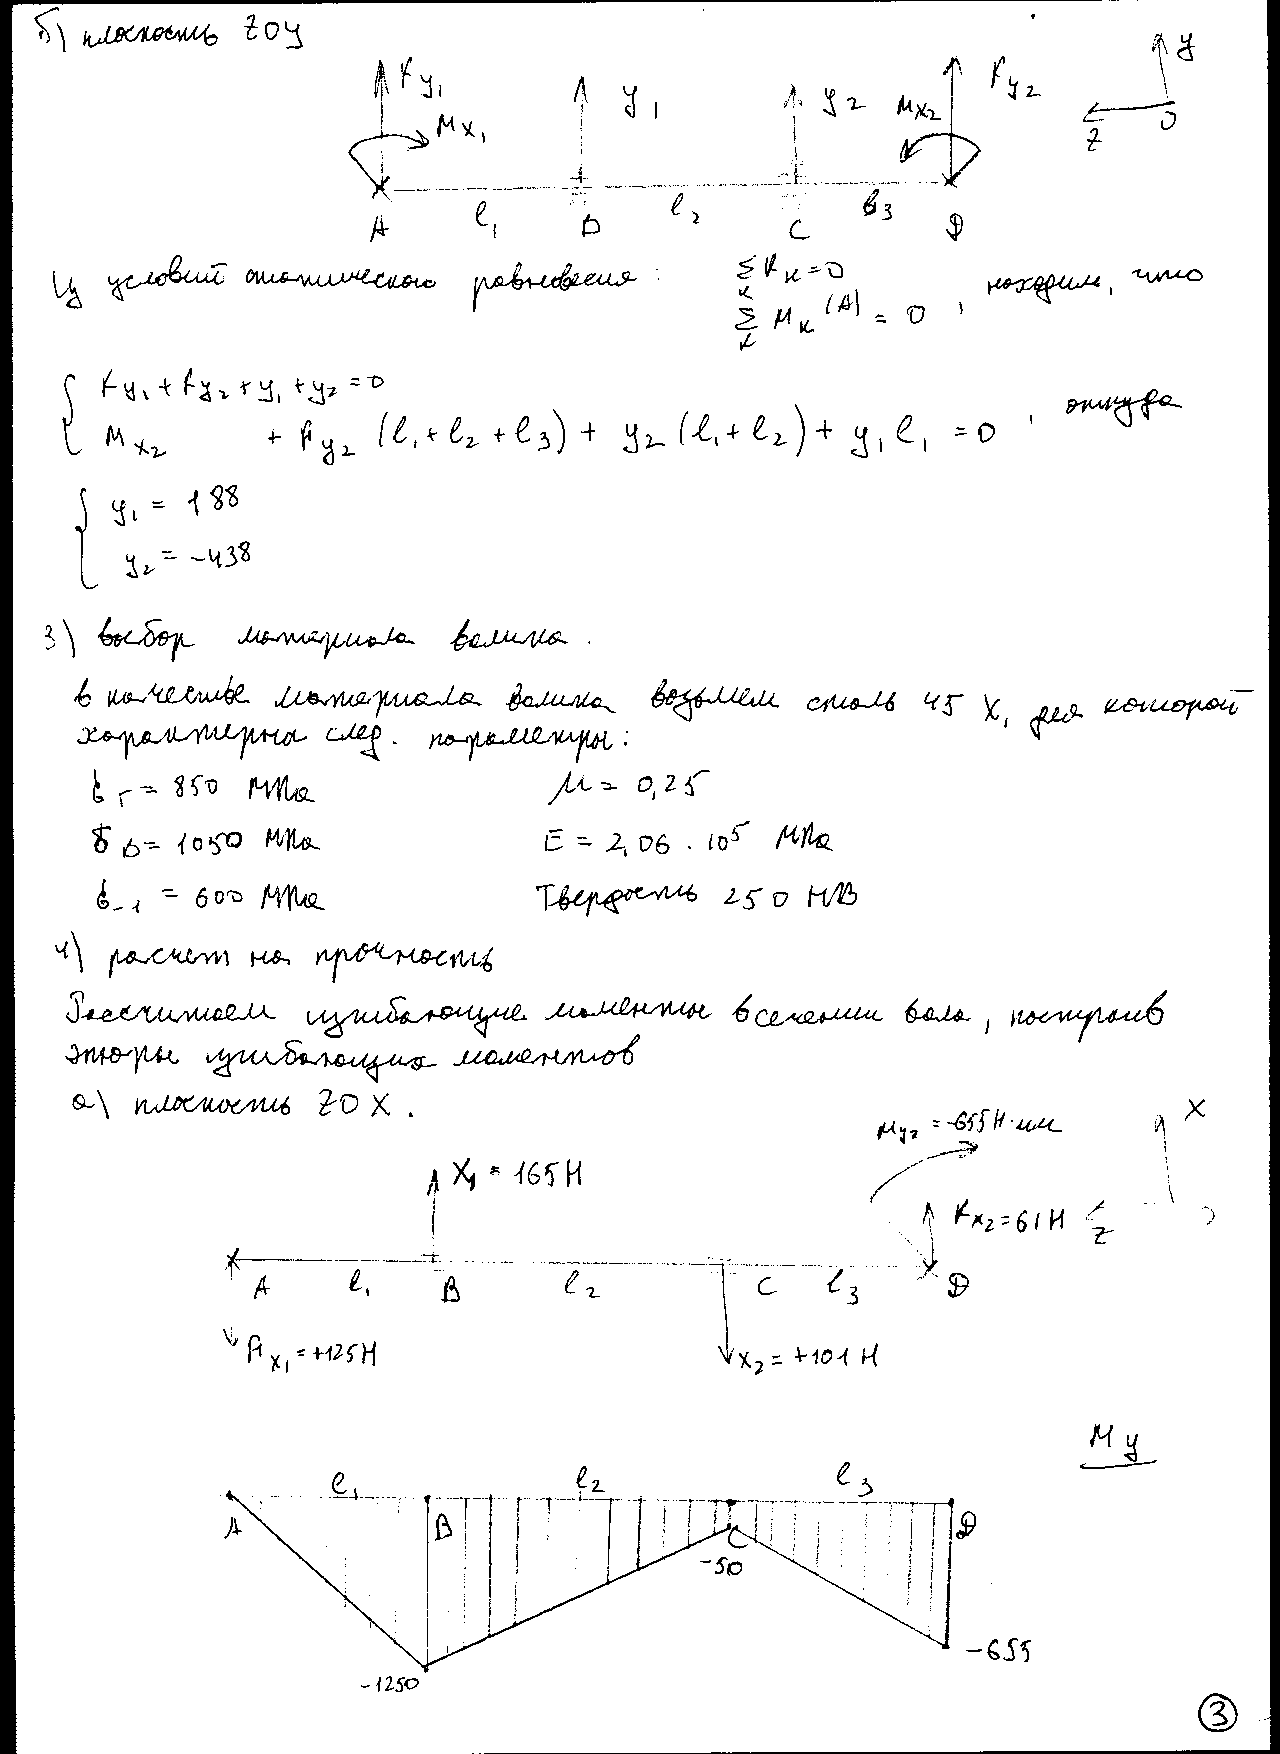 б) плоскость ZOY
Fy₁ y₁ y₂ Mx₂ Fy₂ y
Mx₁ Z O
A l₁ B l₂ C l₃ D
Из условий статического равновесия: Σ Fк = 0
к
Σ Mк (A) = 0, находим, что
к
Fy₁ + Fy₂ + y₁ + y₂ = 0
Mx₂ + Fy₂ (l₁ + l₂ + l₃) + y₂ (l₁ + l₂) + y₁ l₁ = 0, откуда
y₁ = 188
y₂ = -438
3) выбор материала валика.
в качестве материала валика возьмем сталь 45 Х, для которой
характерны след. параметры:
бт = 850 МПа μ = 0,25
бв = 1050 МПа E = 2,06 · 10⁵ МПа
б₋₁ = 600 МПа Твердость 250 HB
4) расчет на прочность
Рассчитаем изгибающие моменты в сечении вала, построив
эпюры изгибающих моментов
а) плоскость ZOX.
My₂ = -655 Н·мм X
X₁ = 165 Н Fx₂ = 61 Н Z O
A l₁ B l₂ C l₃ D
Fx₁ = +125 Н X₂ = +101 Н
My
l₁ l₂ l₃
A B C D
-50
-655
-1250
3